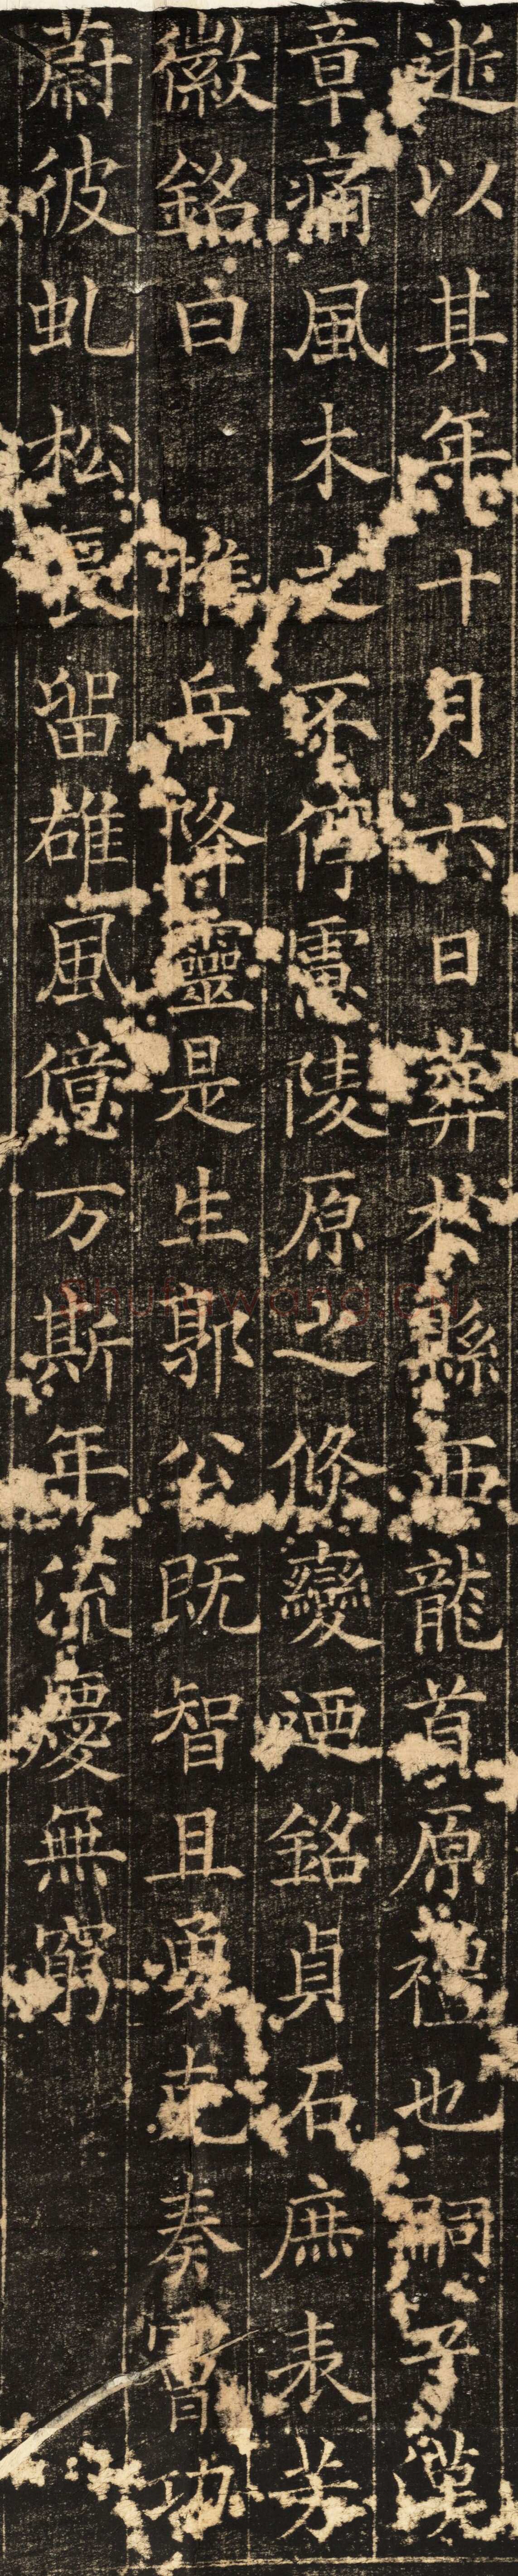 逝以其年十月六日葬於縣西龍首原禮也嗣子漢
章痛風木之不停慮陵原之倏變迺銘貞石庶表芳
徽銘曰惟岳降靈是生郭公既智且勇克奏膚功
蔚彼虬松長留雄風億万斯年流慶無窮
Shufawang.cn